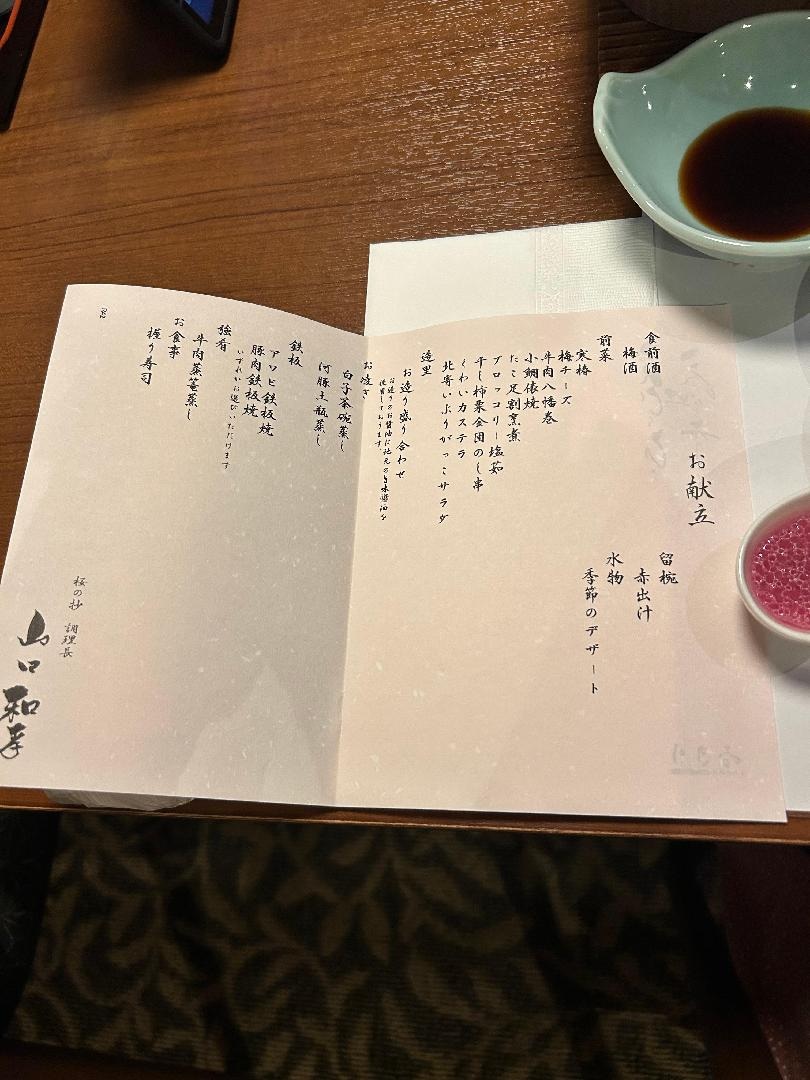 お献立
食前酒
梅酒
前菜
寒椿
梅チーズ
牛肉八幡巻
小鯛俵焼
たこ足割烹煮
ブロッコリー塩茹
干し柿栗金団のし串
くわいカステラ
北寄いぶりがっこサラダ
造里
お造り盛り合わせ
お造りのお醤油に地元の旨味醤油を
使用しております。
お凌ぎ
白子茶碗蒸し
河豚土瓶蒸し
鉄板
アワビ鉄板焼
豚肉鉄板焼
いずれかお選びいただけます
強肴
牛肉蒸篭蒸し
お食事
握り寿司
留椀
赤出汁
水物
季節のデザート
桜の抄 調理長
山口和孝